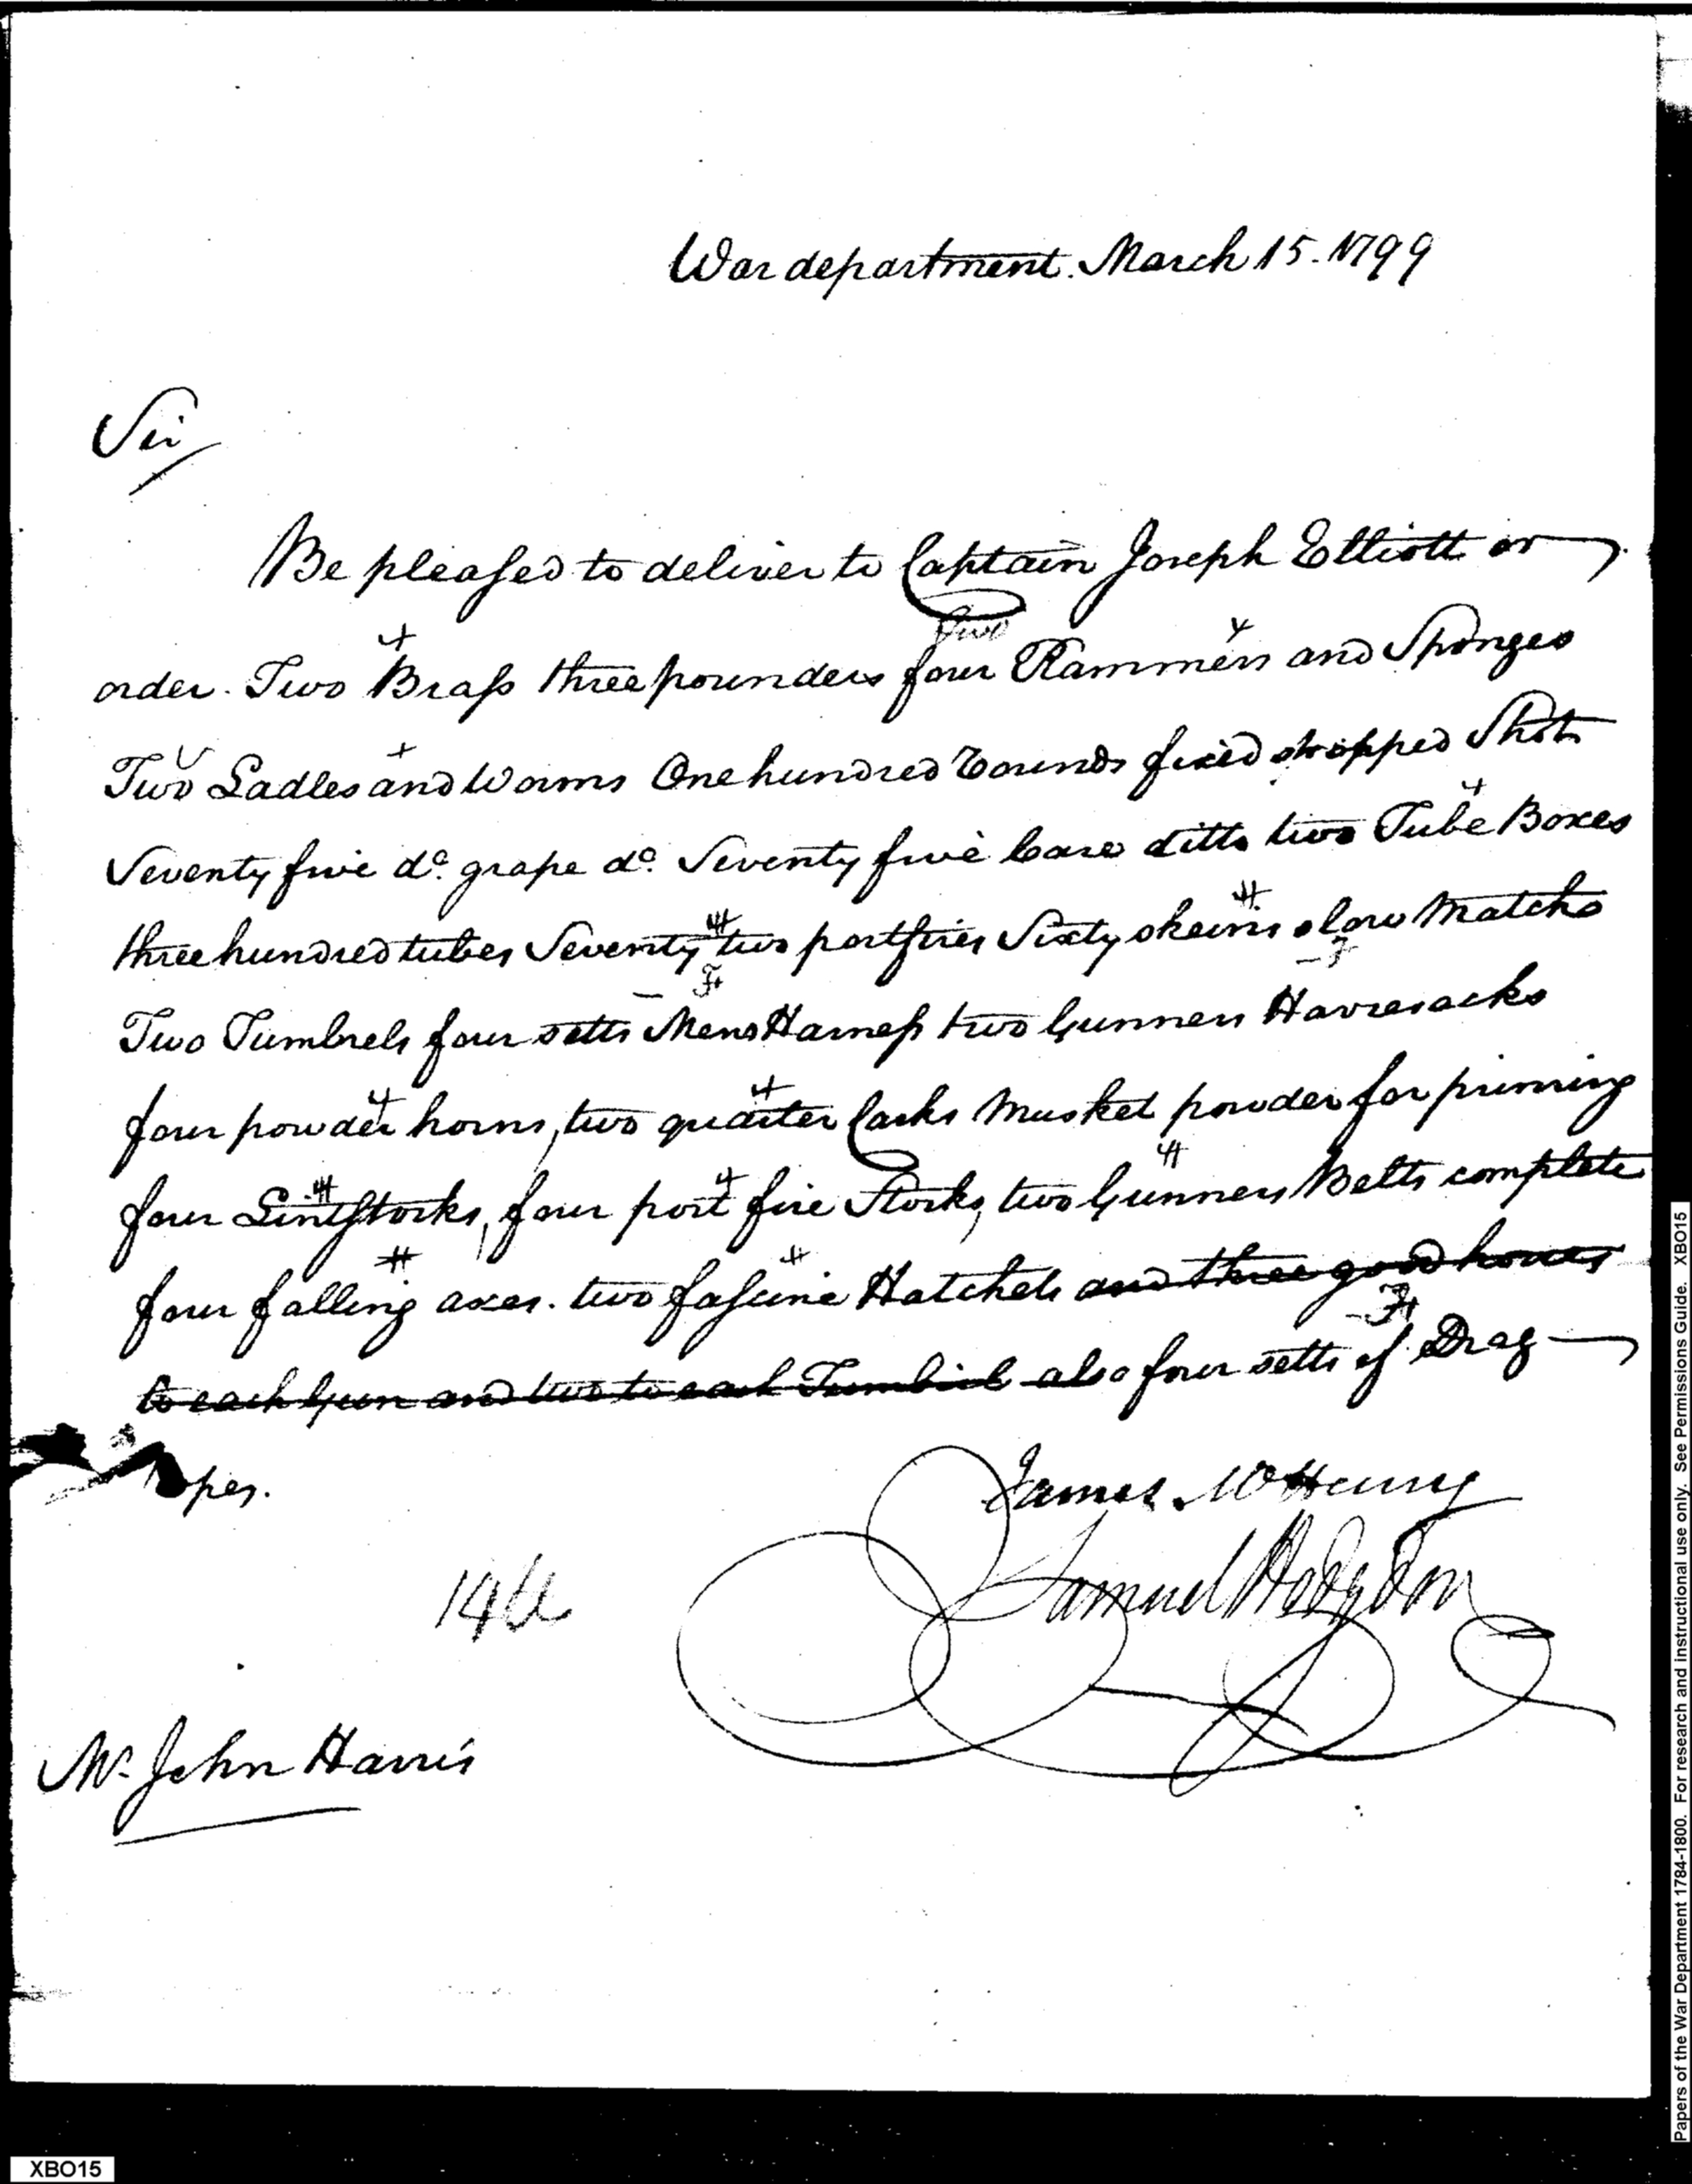 War department. March 15. 1799
Sir
Be pleased to deliver to Captain Joseph Elliott or
two
order. Two Brass three pounders four Rammers and Sponges
Two Ladles and Worms One hundred rounds fixed strapped Shot
Seventy five do. grape do. Seventy five Case ditto two Tube Boxes
three hundred tubes Seventy two portfires Sixty skeins slow Match
Two Tumbrels four setts Mens Harness two Gunners Havresacks
four powder horns, two quarter Casks Musket powder for priming
four Lintstocks, four port fire Stocks, two Gunners Belts complete
four falling axes. two fascine Hatchets and three good horses
to each Gun and two to each Tumbril also four setts of Drag
opes.
James McHenry
Samuel Hodgdon
Mr. John Harris
XBO15
Papers of the War Department 1784-1800. For research and instructional use only. See Permissions Guide. XBO15